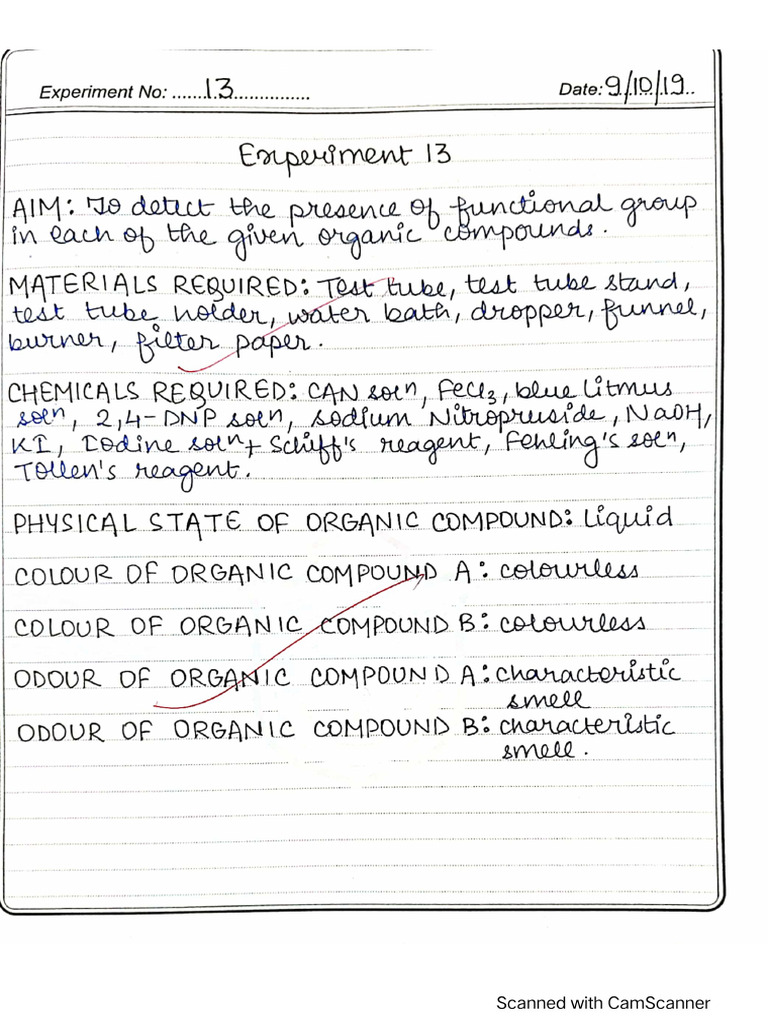 Experiment No: .......13...............
Date: 9/10/19..
Experiment 13
AIM: To detect the presence of functional group
in each of the given organic compounds.
MATERIALS REQUIRED: Test tube, test tube stand,
test tube holder, water bath, dropper, funnel,
burner, filter paper.
CHEMICALS REQUIRED: CAN soln, FeCl3, blue litmus
soln, 2,4-DNP soln, sodium Nitropruside, NaOH,
KI, Iodine soln + Schiff's reagent, Fehling's soln,
Tollen's reagent.
PHYSICAL STATE OF ORGANIC COMPOUND: Liquid
COLOUR OF ORGANIC COMPOUND A: colourless
COLOUR OF ORGANIC COMPOUND B: colourless
ODOUR OF ORGANIC COMPOUND A: characteristic
smell
ODOUR OF ORGANIC COMPOUND B: characteristic
smell.
Scanned with CamScanner